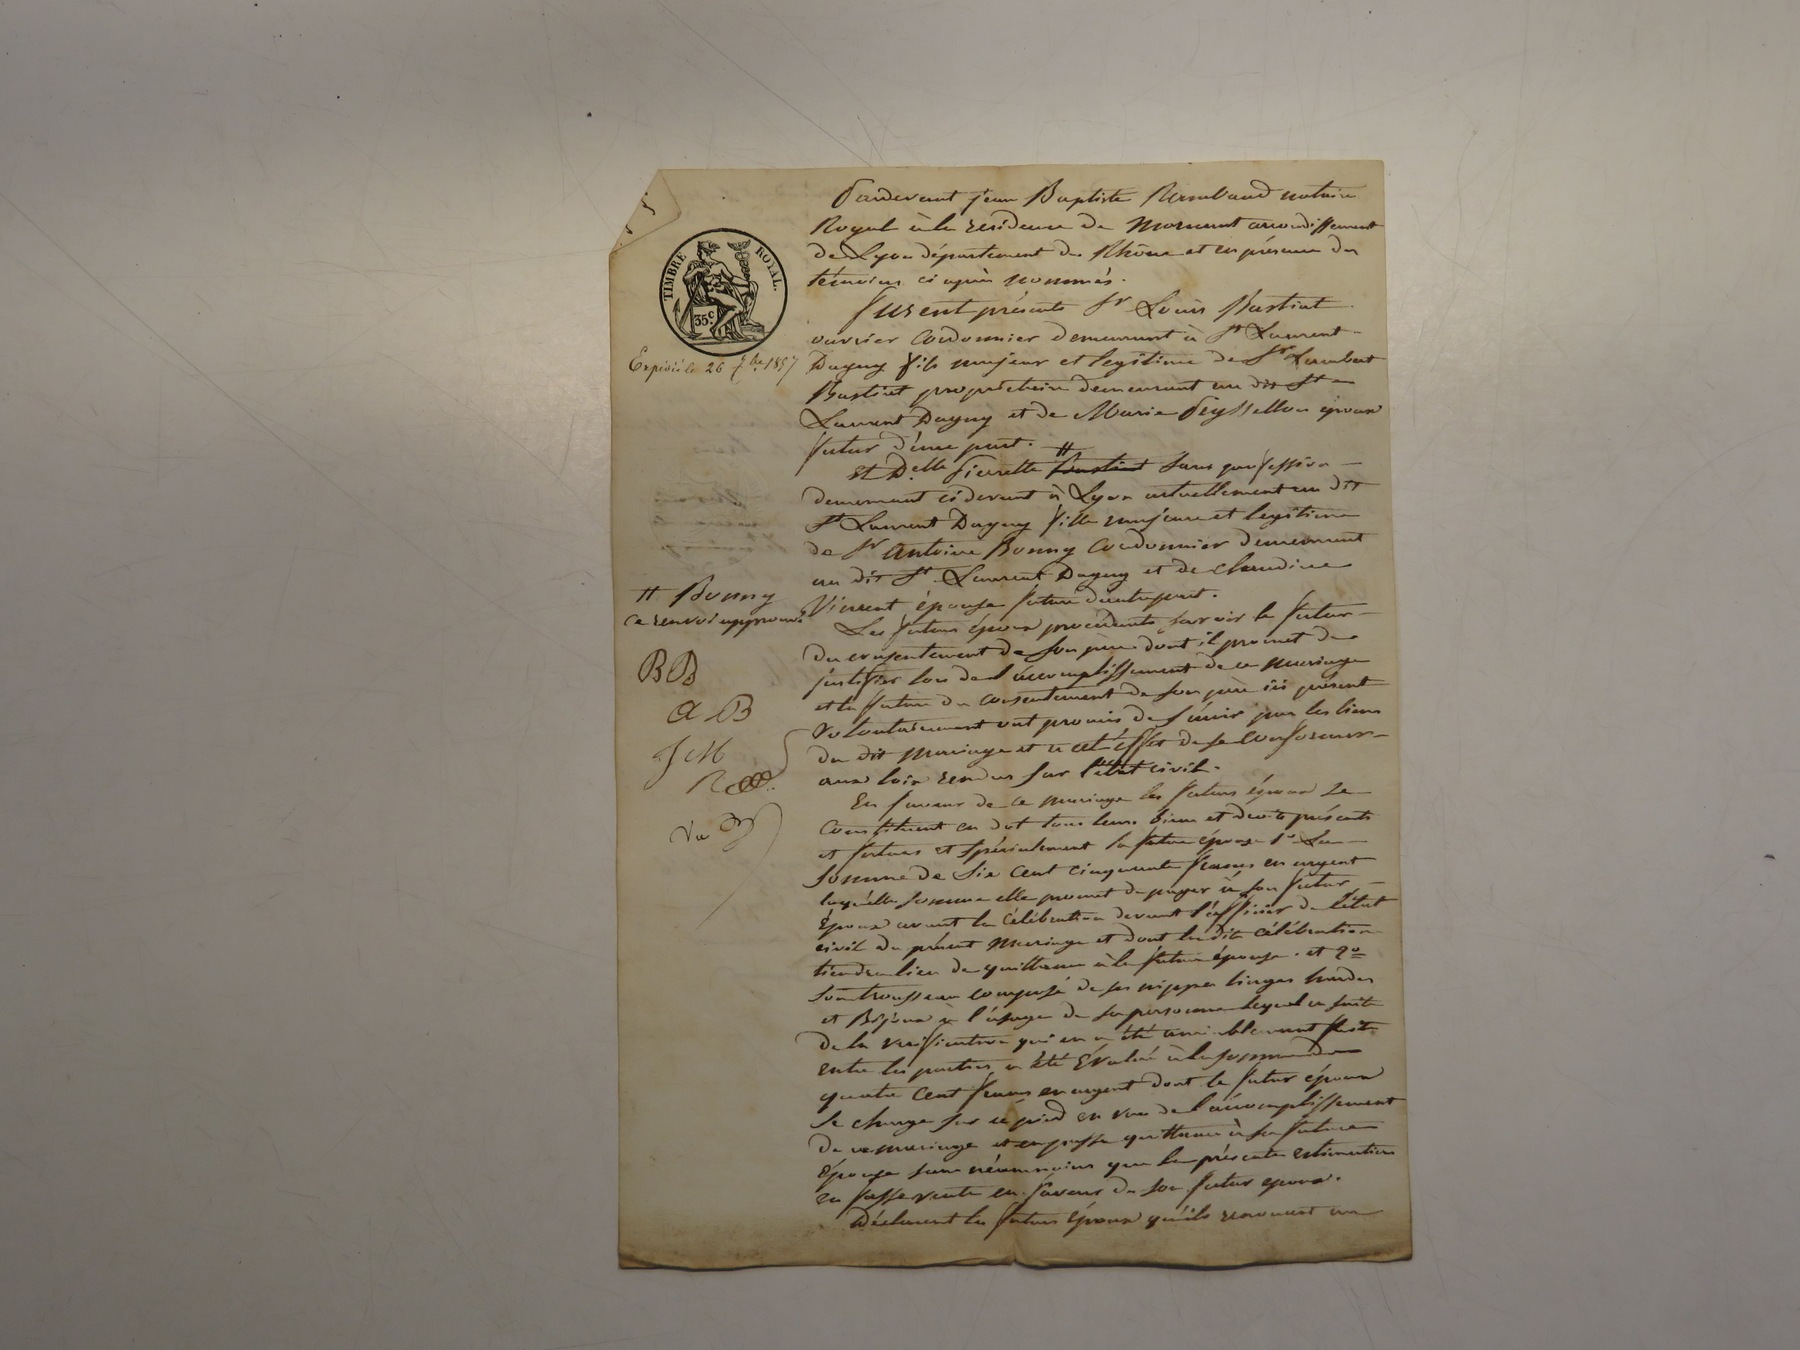 Pardevant jean Baptiste Rambaud notaire
Royal à la residence de Mornant arrondissement
de Lyon département du Rhône et en présence des
témoins ci après nommés.
TIMBRE ROYAL.
35 C.
Expédié le 26 7bre 1857
furent présents Sr Louis Bastiat
ouvrier Cordonnier demeurant à St Laurent
Dagny fils majeur et legitime de Sr Lambert
Bastiat propriétaire demeurant au dit St
Laurent Dagny et de Marie Peyssellon époux
futur d'une part.
Et Delle Pierrette # Bastiat sans profession
demeurant cidevant à Lyon actuellement au dit
St Laurent Dagny fille majeure et legitime
de Sr Antoine Bonny Cordonnier demeurant
au dit St Laurent Dagny et de claudine
# Bonny
ce renvoi approuvé
Vincent épouse future d'autre part.
Les futurs époux procédants savoir le futur
du consentement de son père dont il promet de
justifier lors de l'accomplissement de ce mariage
et la future du consentement de son père ici présent
volontairement ont promis de s'unir par les liens
du dit mariage et à cet éffet de se conformer
aux lois rendus sur l'état civil.
BB
AB
JM
R
Vu
En faveur de ce mariage les futurs époux se
Constituent en dot tous leurs biens et droits présents
et futurs et spécialement la future épouse 1° La
somme de Six Cent cinquante francs en argent
laquelle somme elle promet de payer à son futur
époux avant la célébration devant l'officier de l'état
civil du présent mariage et dont la dite célébration
tiendra lieu de quittance à la future épouse. et 2°
son trousseau composé de ses nippes linges hardes
et Bijoux à l'usage de sa personne lequel en suite
de la verification qui en a été amiablement faite
entre les parties a été évalué à la somme de
quatre Cent francs en argent dont le futur époux
se charge sur ce pied en vue de l'accomplissement
de ce mariage et en passe quittance à sa future
épouse sans néanmoins que la présente estimation
en fasse vente en faveur de son futur epoux.
Déclarent les futurs époux qu'ils renoncent au